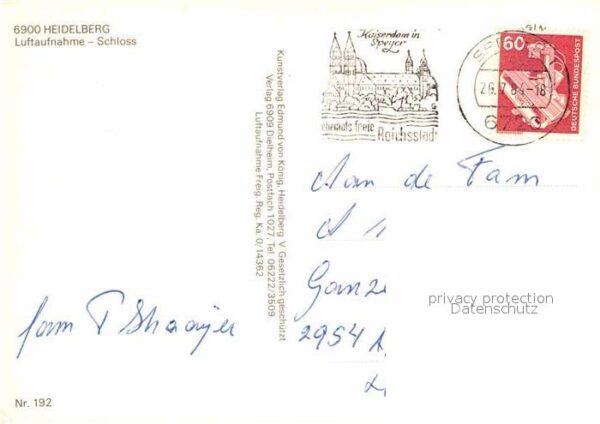 6900 HEIDELBERG
Luftaufnahme – Schloss
Kunstverlag Edmund von König, Heidelberg V Gesetzlich geschützt
Verlag 6909 Dielheim, Postfach 1027, Tel. 06222/3509
Luftaufnahme Freig. Reg. Ka. 0/14362
Kaiserdom in
Speyer
ehemals freie
Reichsstadt
60
DEUTSCHE BUNDESPOST
20.7.84-18
Aan de Fam
2954 A
privacy protection
Datenschutz
fam
Nr. 192